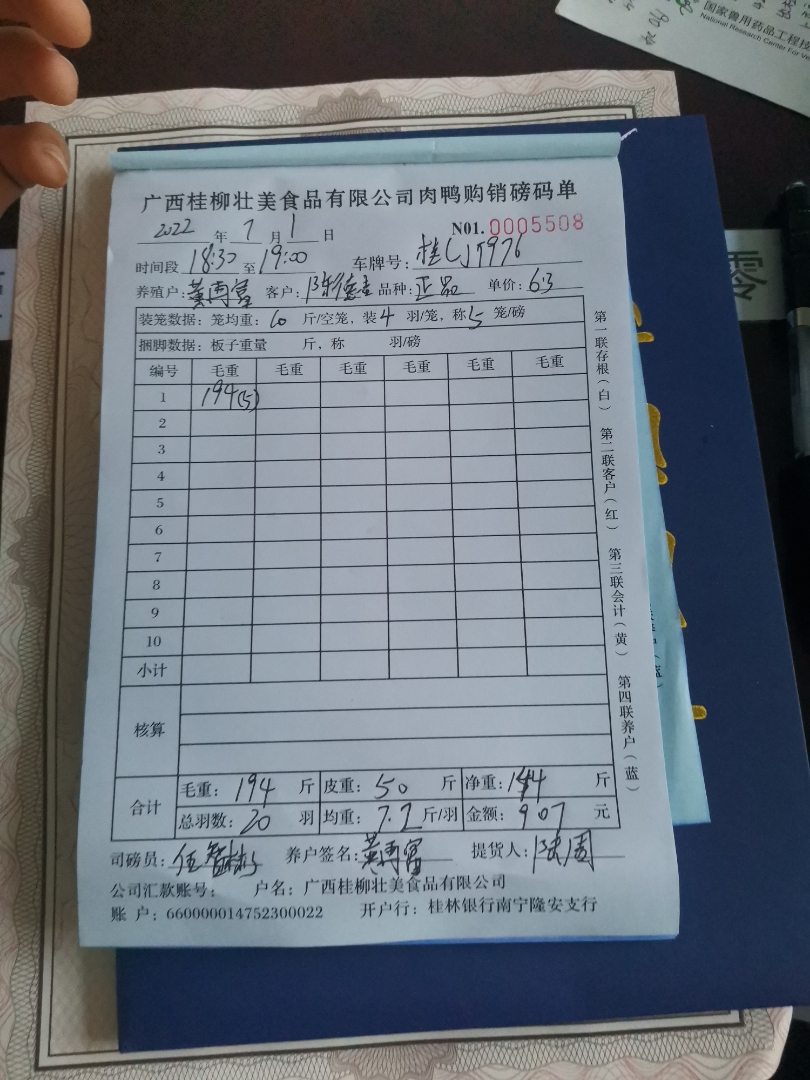 国家兽用药品工程技
National Research Center For Ve
零
广西桂柳壮美食品有限公司肉鸭购销磅码单
2022 年 7 月 1 日 N01. 0005508
时间段 18:30 至 19:00 车牌号: 桂CJ5976
养殖户: 黄雨富 客户: 陈德 品种: 正品 单价: 6.3
装笼数据: 笼均重: 10 斤/空笼, 装 4 羽/笼, 称 5 笼/磅
捆脚数据: 板子重量 斤, 称 羽/磅
编号 毛重 毛重 毛重 毛重 毛重 毛重
1 194(5)
2
3
4
5
6
7
8
9
10
小计
核算
合计 毛重: 194 斤 皮重: 50 斤 净重: 144 斤
总羽数: 20 羽 均重: 7.2 斤/羽 金额: 907 元
司磅员: 伍 养户签名: 黄雨富 提货人: 周
公司汇款账号: 户名: 广西桂柳壮美食品有限公司
账 户: 660000014752300022 开户行: 桂林银行南宁隆安支行
第一联存根(白) 第二联客户(红) 第三联会计(黄) 第四联养户(蓝)